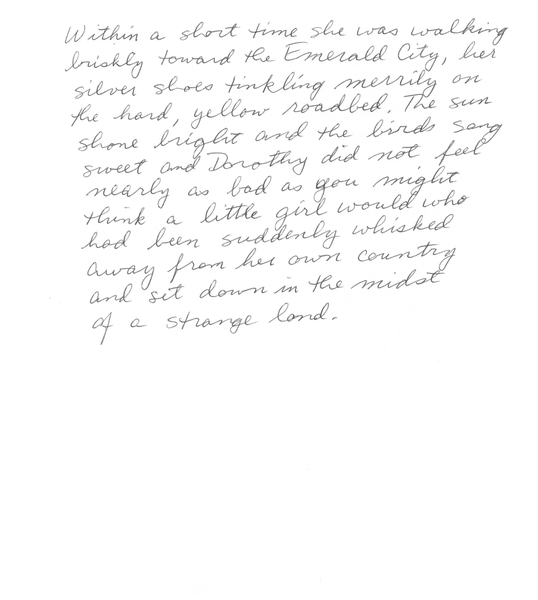 Within a short time she was walking
briskly toward the Emerald City, her
silver shoes tinkling merrily on
the hard, yellow roadbed. The sun
shone bright and the birds sang
sweet and Dorothy did not feel
nearly as bad as you might
think a little girl would who
had been suddenly whisked
away from her own country
and sit down in the midst
of a strange land.